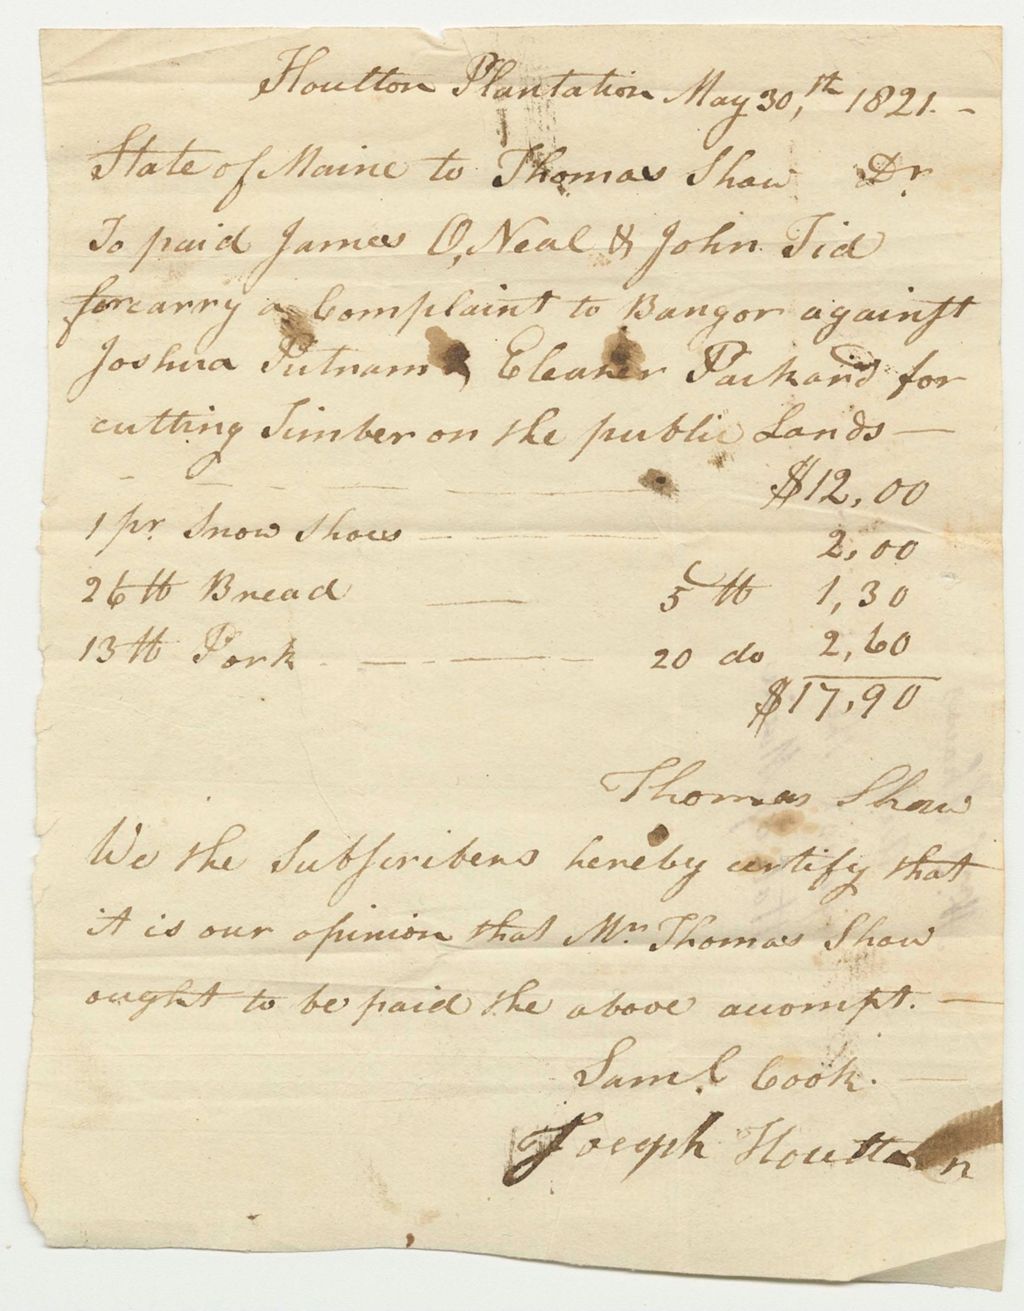 Houlton Plantation May 30,th 1821.-
State of Maine to Thomas Shaw Dr
To paid James O,Neal & John Tid
for carry a Complaint to Bangor against
Joshua Putnam & Eleaner Packard for
cutting Timber on the public Lands —
$12,00
1 pr. Snow Shoes — 2,00
26 ℔ Bread — 5 ℔ 1,30
13 ℔ Pork — 20 do 2,60
$17,90
Thomas Shaw
We the Subscribers hereby certify that
it is our opinion that Mr. Thomas Shaw
ought to be paid the above accompt. —
Saml. Cook. —
Joseph Houlton